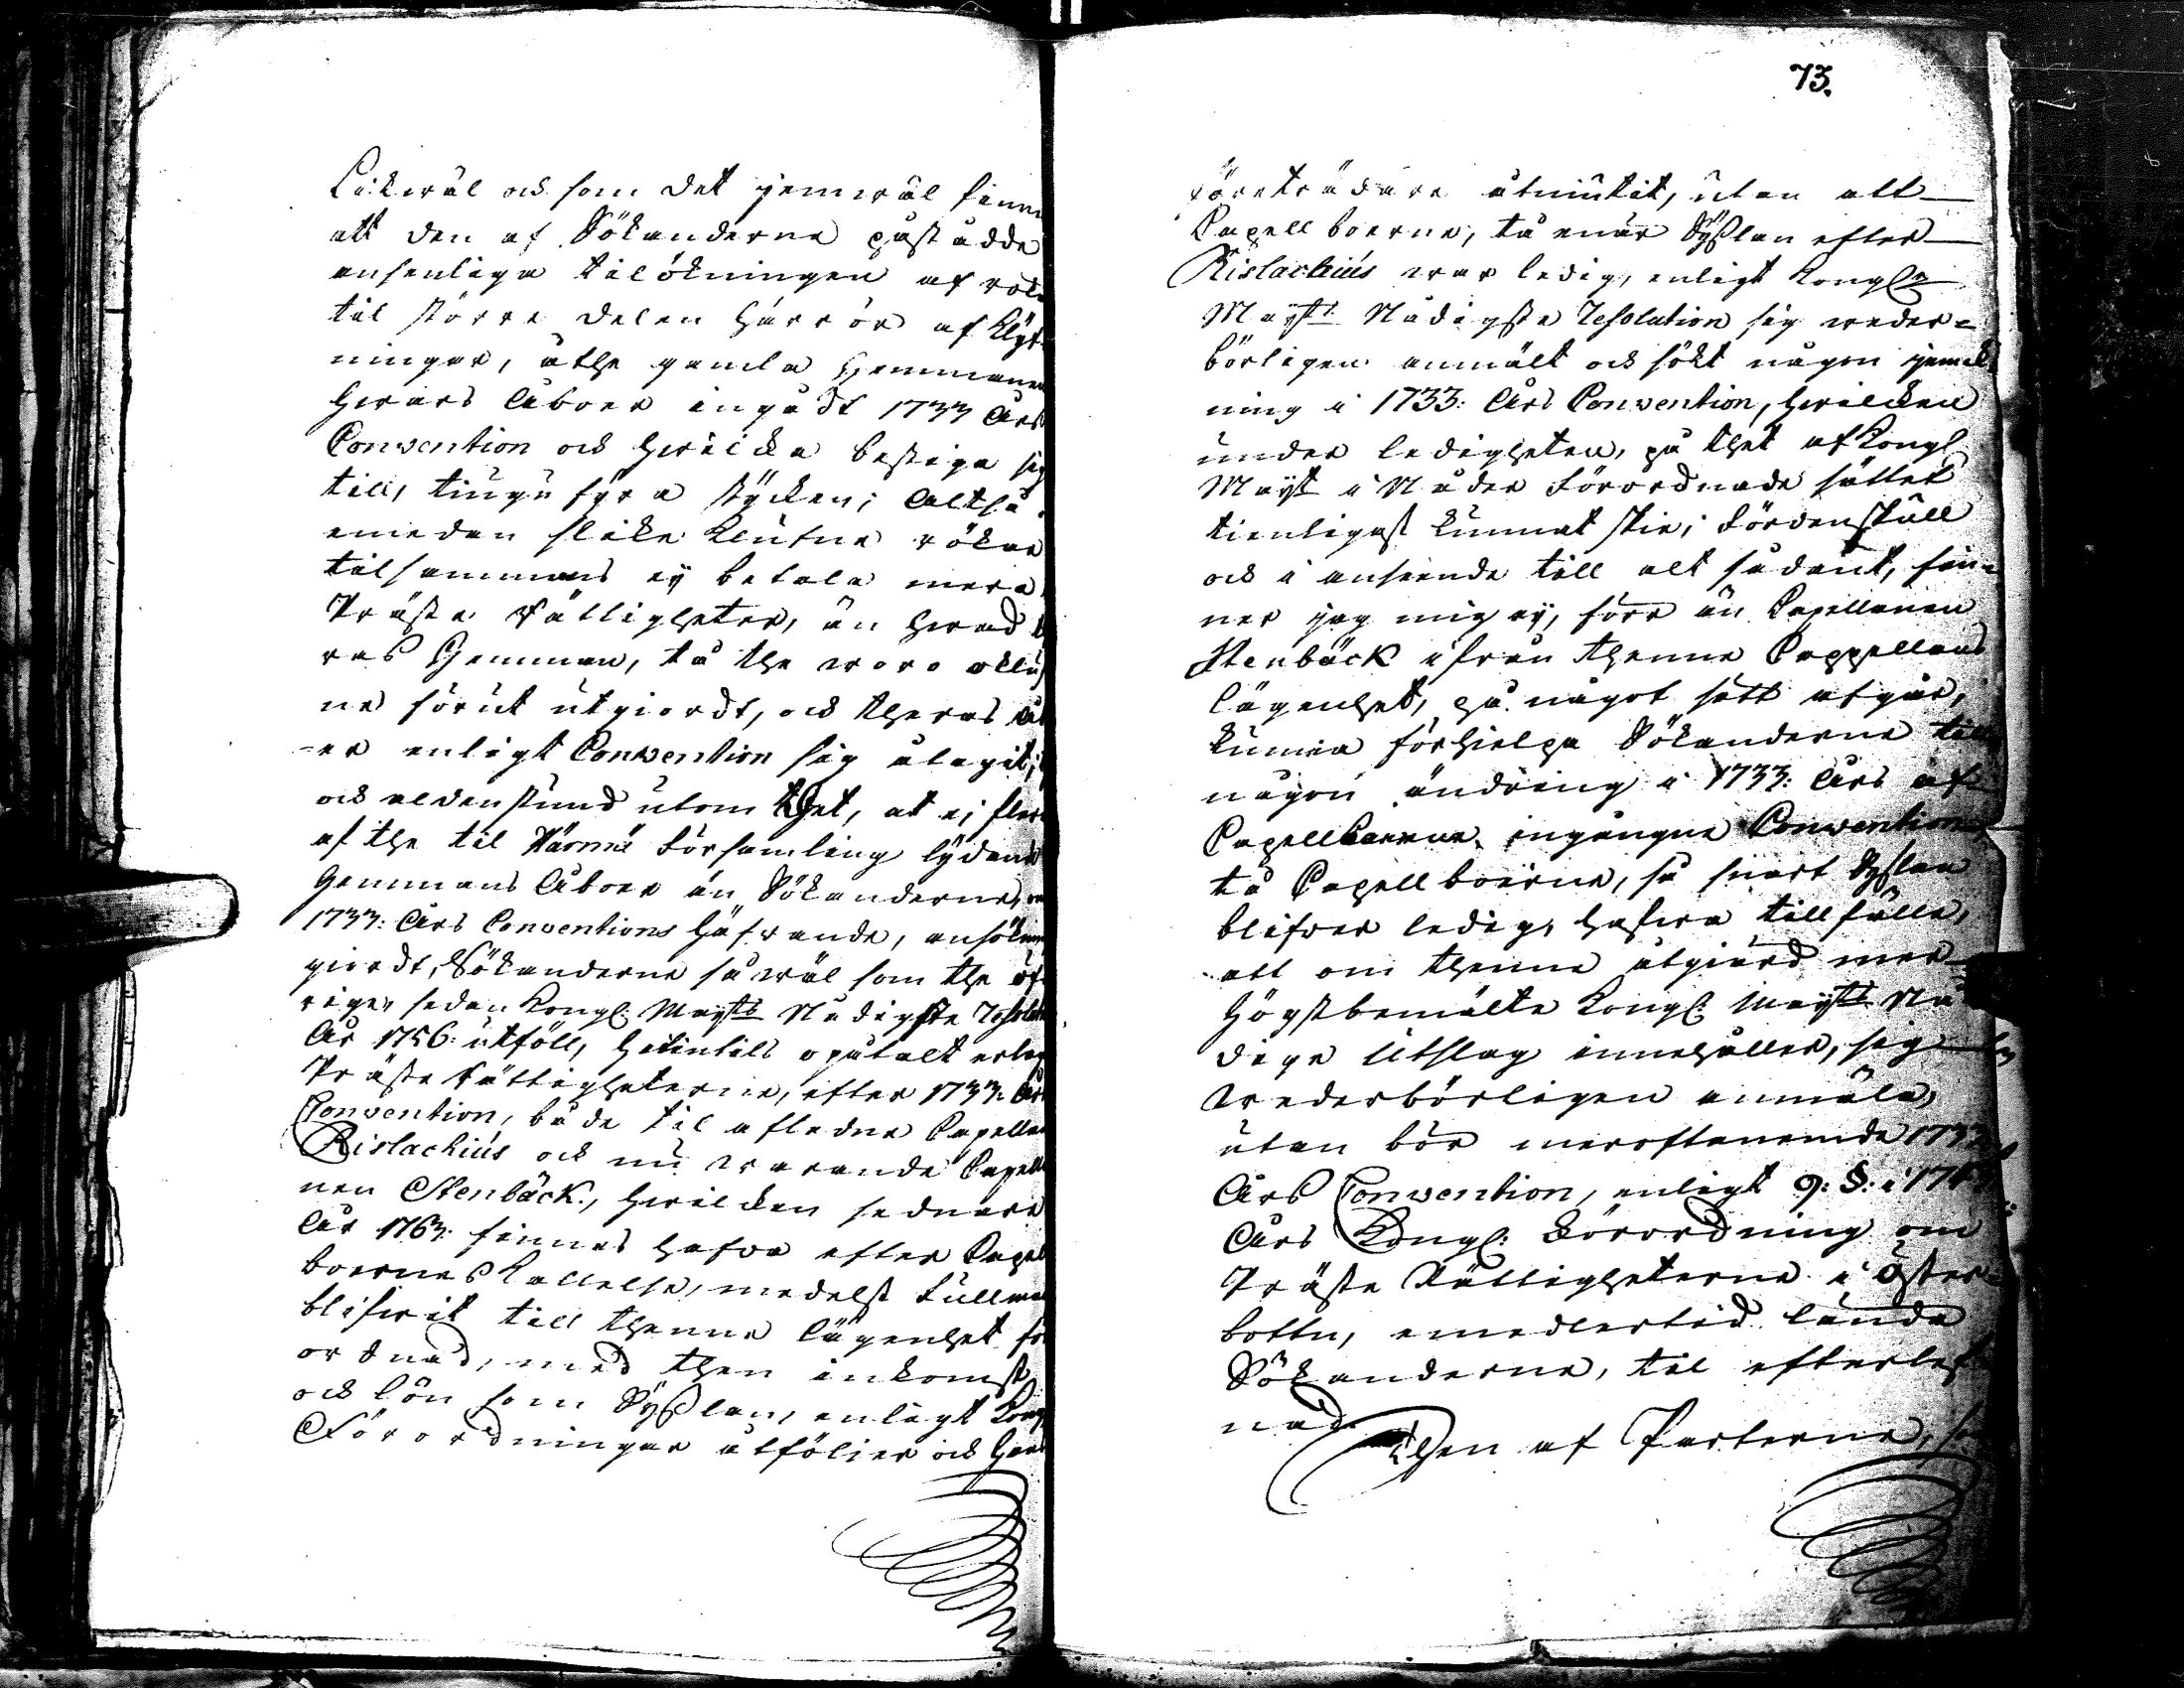 Lickwäl och som det jemwäl finn
att den af Sökanderne påstådde
ansenliga tilökningen af rök
til större delen härrör af klyf
ningar, å the gamla Hemmanen
hwars Åboer ingådt 1733 Års
Convention och hwilcka bestiga sig
till, tiugu fyra stycken; Altså
emedan slike klufne rökar
tilsammans ej betala mera
Präste Rättigheter, än hwad
ras Hemman, tå the woro okluf
ne förut utgiordt, och theras Åb
er enligt Convention sig åtagit,
och aldenstund utom thet, at ej flere
af the til Församling lydande
Hemmans Åboer än Sökanderne, om
1733: Års Conventions häfwande, ansökn
giordt, Sökanderne så wäl som the öf
rige, sedan Kongl: Mayts Nådigste Resolut
År 1756: utföll, hitintils opåtalt erlag
Präste Rättigheterne, efter 1733: Års
Convention, både til afledne Capellan
Rislachius och nu warande Capella
nen Stenbäck, hwilcken sednare
År 1763: finnes hafwa efter Capell
boernes Kallelse, medelst Fullmak
blifwit till thenne lägenhet för
ordnad, med then inkomst
och lön som Sysslan, enligt Kongl
Förordningar åtföljer och hans
73.
Företrädare åtniutit, utan att
Capellboerne, tå enär Sysslan efter
Rislachius war ledig, enligt Kongl:
Mayts Nådigste Resolution sig weder-
börligen anmält och sökt någon jemck
ning i 1733: Års Convention, hwilcken
under ledigheten, på thet af Kongl
Mayt i Nåder Förordnade sättet
tienligast kunnat skie; Fördenskull
och i anseende till alt sådant, fin-
ner jag mig ej, förr än Capellanen
Stenbäck ifrån thenne Cappellans
lägenhet, på något sätt afgår,
kunna förhielpa Sökanderne till
någon ändring i 1733: Års af
Capellboerne ingångne Convention
tå Capellboerne, så snart Sysslan
blifwer ledig, hafwa tillfälle,
att om thenne åtgiärd mer
högstbemälte Kongl: Mayts Nå
dige Utslag innehåller, sig
wederbörligen anmäla,
utan bör meroftanemde 1733
Års Convention, enligt 9: §: i
Års Kongl: Förordning om
Präste Rättigheterne i Öster-
bottn, emedlertid lända
Sökanderne, til efterlef
nad.
Then af Parterne, so